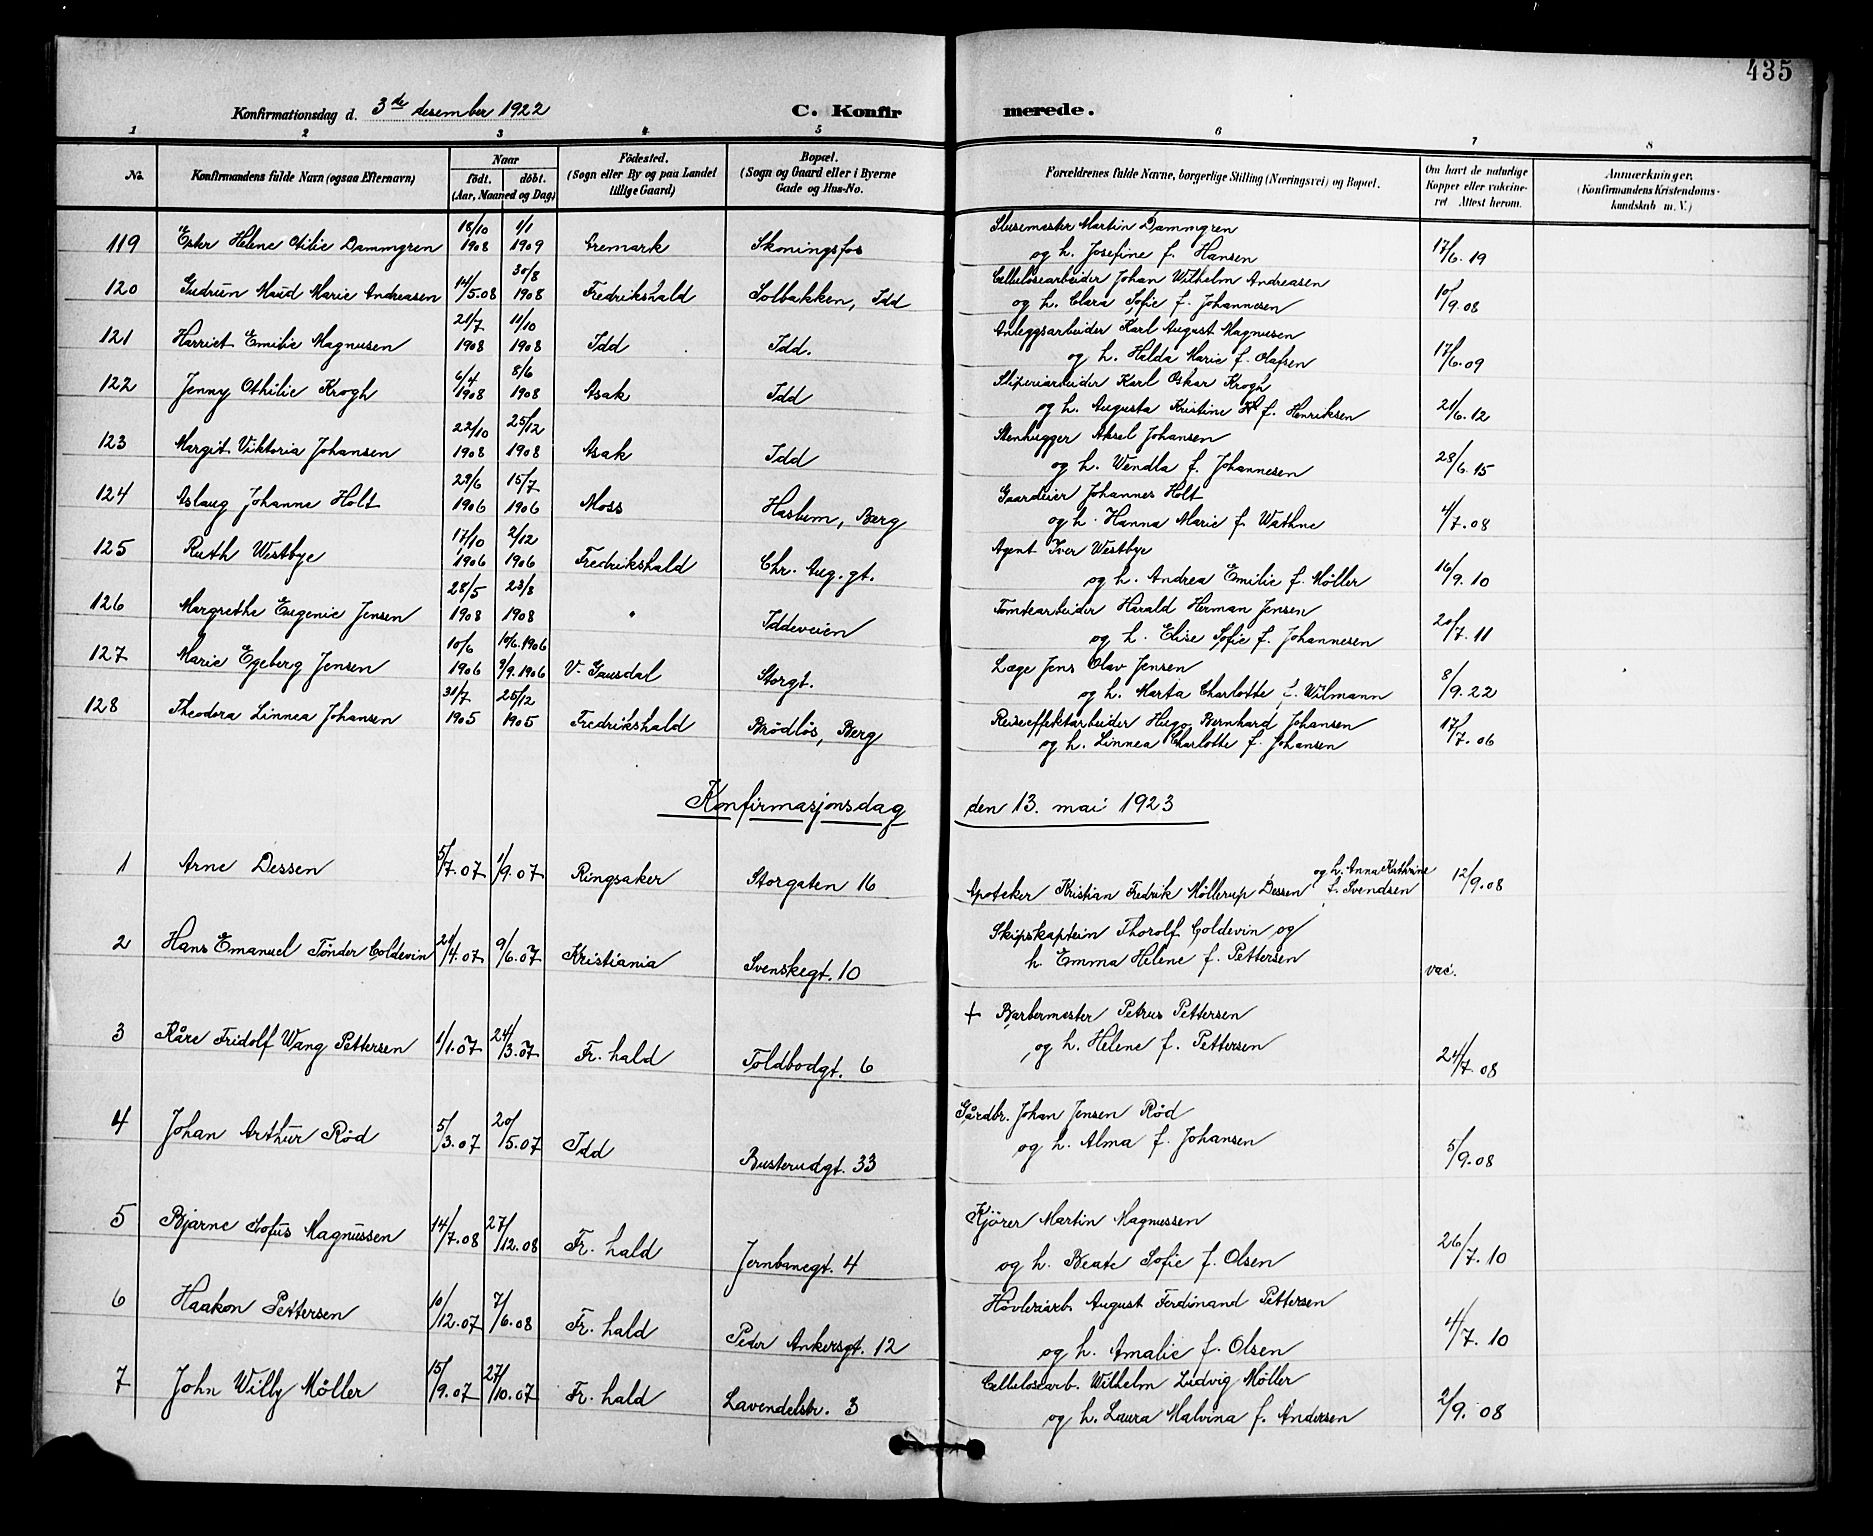 435
Konfirmationsdag d. 3de desember 1922 C. Konfirmerede.
1 2 3 4 5 6 7 8
No. Konfirmandens fulde Navn (ogsaa Efternavn) Naar født. døbt. (Aar, Maaned og Dag) Fødested. (Sogn eller By og paa Landet tillige Gaard) Bopæl. (Sogn og Gaard eller i Byerne Gade og Hus-No. Forældrenes fulde Navne, borgerlige Stilling (Næringsvei) og Bopæl. Om havt de naturlige Kopper eller vakcineret Attest herom. Anmærkninger. (Konfirmandens Kristendomskundskab m. V.)
119 Ester Helene Otilie Dammgren 18/10 1908 1/1 1909 Aremark Skoningsfos Slusemester Martin Dammgren 17/6.19
og h. Josefine f. Hansen
120 Gudrun Maud Marie Andreasen 14/5.08 30/8 1908 Fredrikshald Solbakken, Idd Cellulosearbeider Johan Wilhelm Andreasen 10/9.08
og h. Clara Sofie f. Johannesen
121 Harriet Emilie Magnusen 21/7 1908 11/10 1908 Idd Idd. Anleggsarbeider Karl August Magnusen 17/6.09
og h. Hilda Marie f. Olafsen
122 Jenny Othilie Krogh 6/4 1908 8/6 1908 Asak Idd Sliperiarbeider Karl Oskar Krogh 21/6.12
og h. Augusta Kristine f. Henriksen
123 Margit Viktoria Johansen 22/10 1908 25/12 1908 Asak Idd Stenhugger Aksel Johansen 28/6.15
og h. Wendla f. Johannesen
124 Aslaug Johanne Holt 29/6 1906 15/7 1906 Moss Haslum, Berg Gaardeier Johannes Holt 4/7.08
og h. Hanna Marie f. Wathne
125 Ruth Westbye 17/10 1906 2/12 1906 Fredrikshald Chr. Aug. gt. Agent Iver Westbye 16/9.10
og h. Andrea Emilie f. Møller
126 Margrethe Eugenie Jensen 28/5 1908 23/8 1908 " Iddeveien Tomtearbeider Harald Herman Jensen 20/7.11
og h. Elise Sofie f. Johannesen
127 Marie Egeberg Jensen 10/6 1906 10/6.1906 9/9.1906 V. Gausdal Storgt. Læge Jens Olav Jensen 8/9.22
og h. Marta Charlotte f. Wilmann
128 Theodora Linnea Johansen 31/7 1905 25/12 1905 Fredrikshald Brødløs, Berg Reiseeffektarbeider Hugo Bernhard Johansen 17/7.06
og h. Linnea Charlotte f. Johansen
Konfirmasjonsdag den 13. mai 1923
1 Arne Dessen 5/7.07 1/9.07 Ringsaker Storgaten 16 Apoteker Kristian Fredrik Møllerup Dessen og h. Anna Kathrine f. Svendsen 12/9.08
2 Hans Emanuel Tønder Coldevin 21/4.07 9/6.07 Kristiania Svenskegt. 10 Skipskaptein Thorolf Coldevin og
h. Emma Helene f. Pettersen vac.
3 Kåre Fridolf Wang Pettersen 1/1.07 24/3.07 Fr. hald Toldbodgt. 6 + Barbermester Petrus Pettersen
og h. Helene f. Pettersen 24/7.08
4 Johan Arthur Rød 5/3.07 20/5.07 Idd Busterudgt. 33 Gårdbr. Johan Jensen Rød
og h. Alma f. Johansen 5/9.08
5 Bjarne Sofus Magnussen 14/7.08 27/12.08 Fr. hald Jernbanegt. 4 Kjører Martin Magnussen
og h. Beate Sofie f. Olsen 26/7.10
6 Haakon Pettersen 10/12.07 7/6.08 Fr. hald Peder Ankersgt. 12 Høvleriarb. August Ferdinand Pettersen
og h. Amalie f. Olsen 4/7.10
7 John Willy Møller 15/9.07 27/10.07 Fr. hald Lavendelstr. 3 Cellulosearb. Wilhelm Ludvig Møller
og h. Laura Malvina f. Andersen 2/9.08